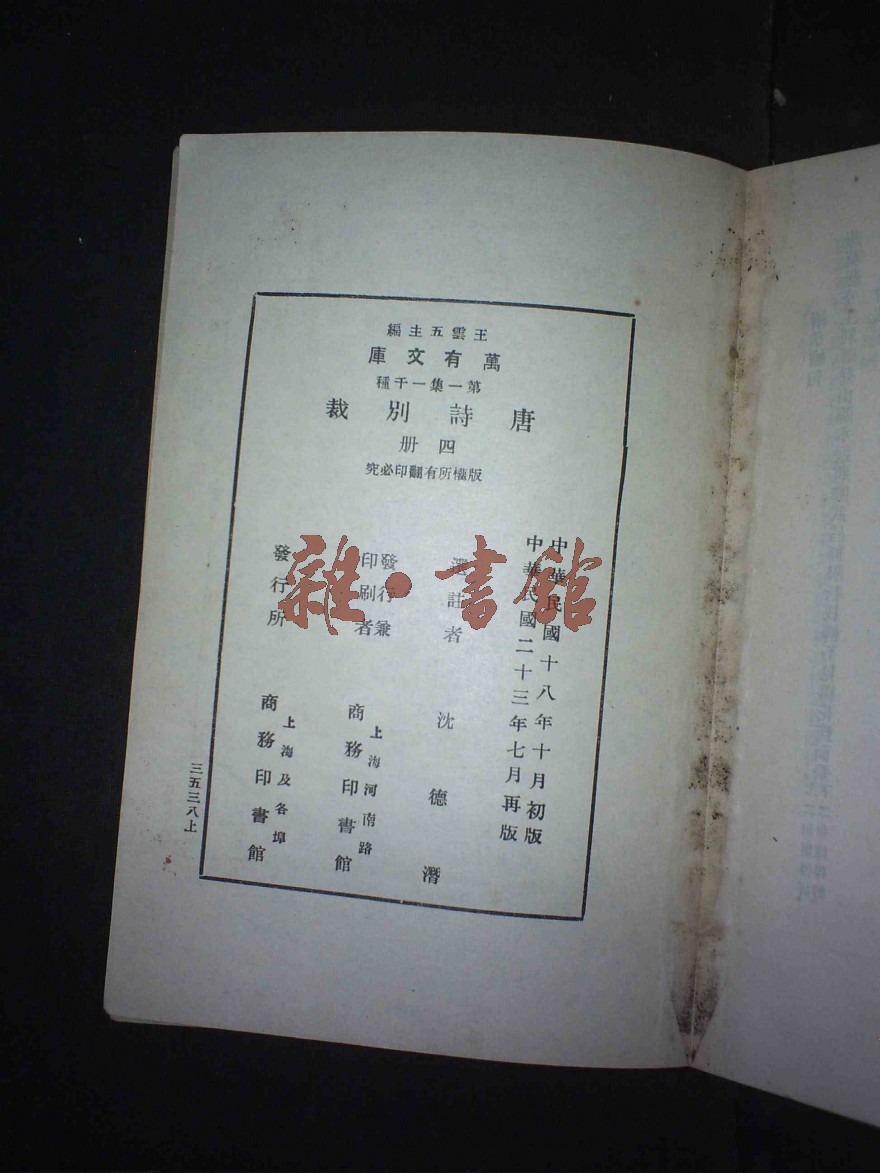 王雲五主編
萬有文庫
第一集一千種
唐詩別裁
四册
版權所有翻印必究
中華民國十八年十月初版
中華民國二十三年七月再版
選註者 沈德潛
發行兼
印刷者
上海河南路
商務印書館
發行所
上海及各埠
商務印書館
三五三八上
雜·書館